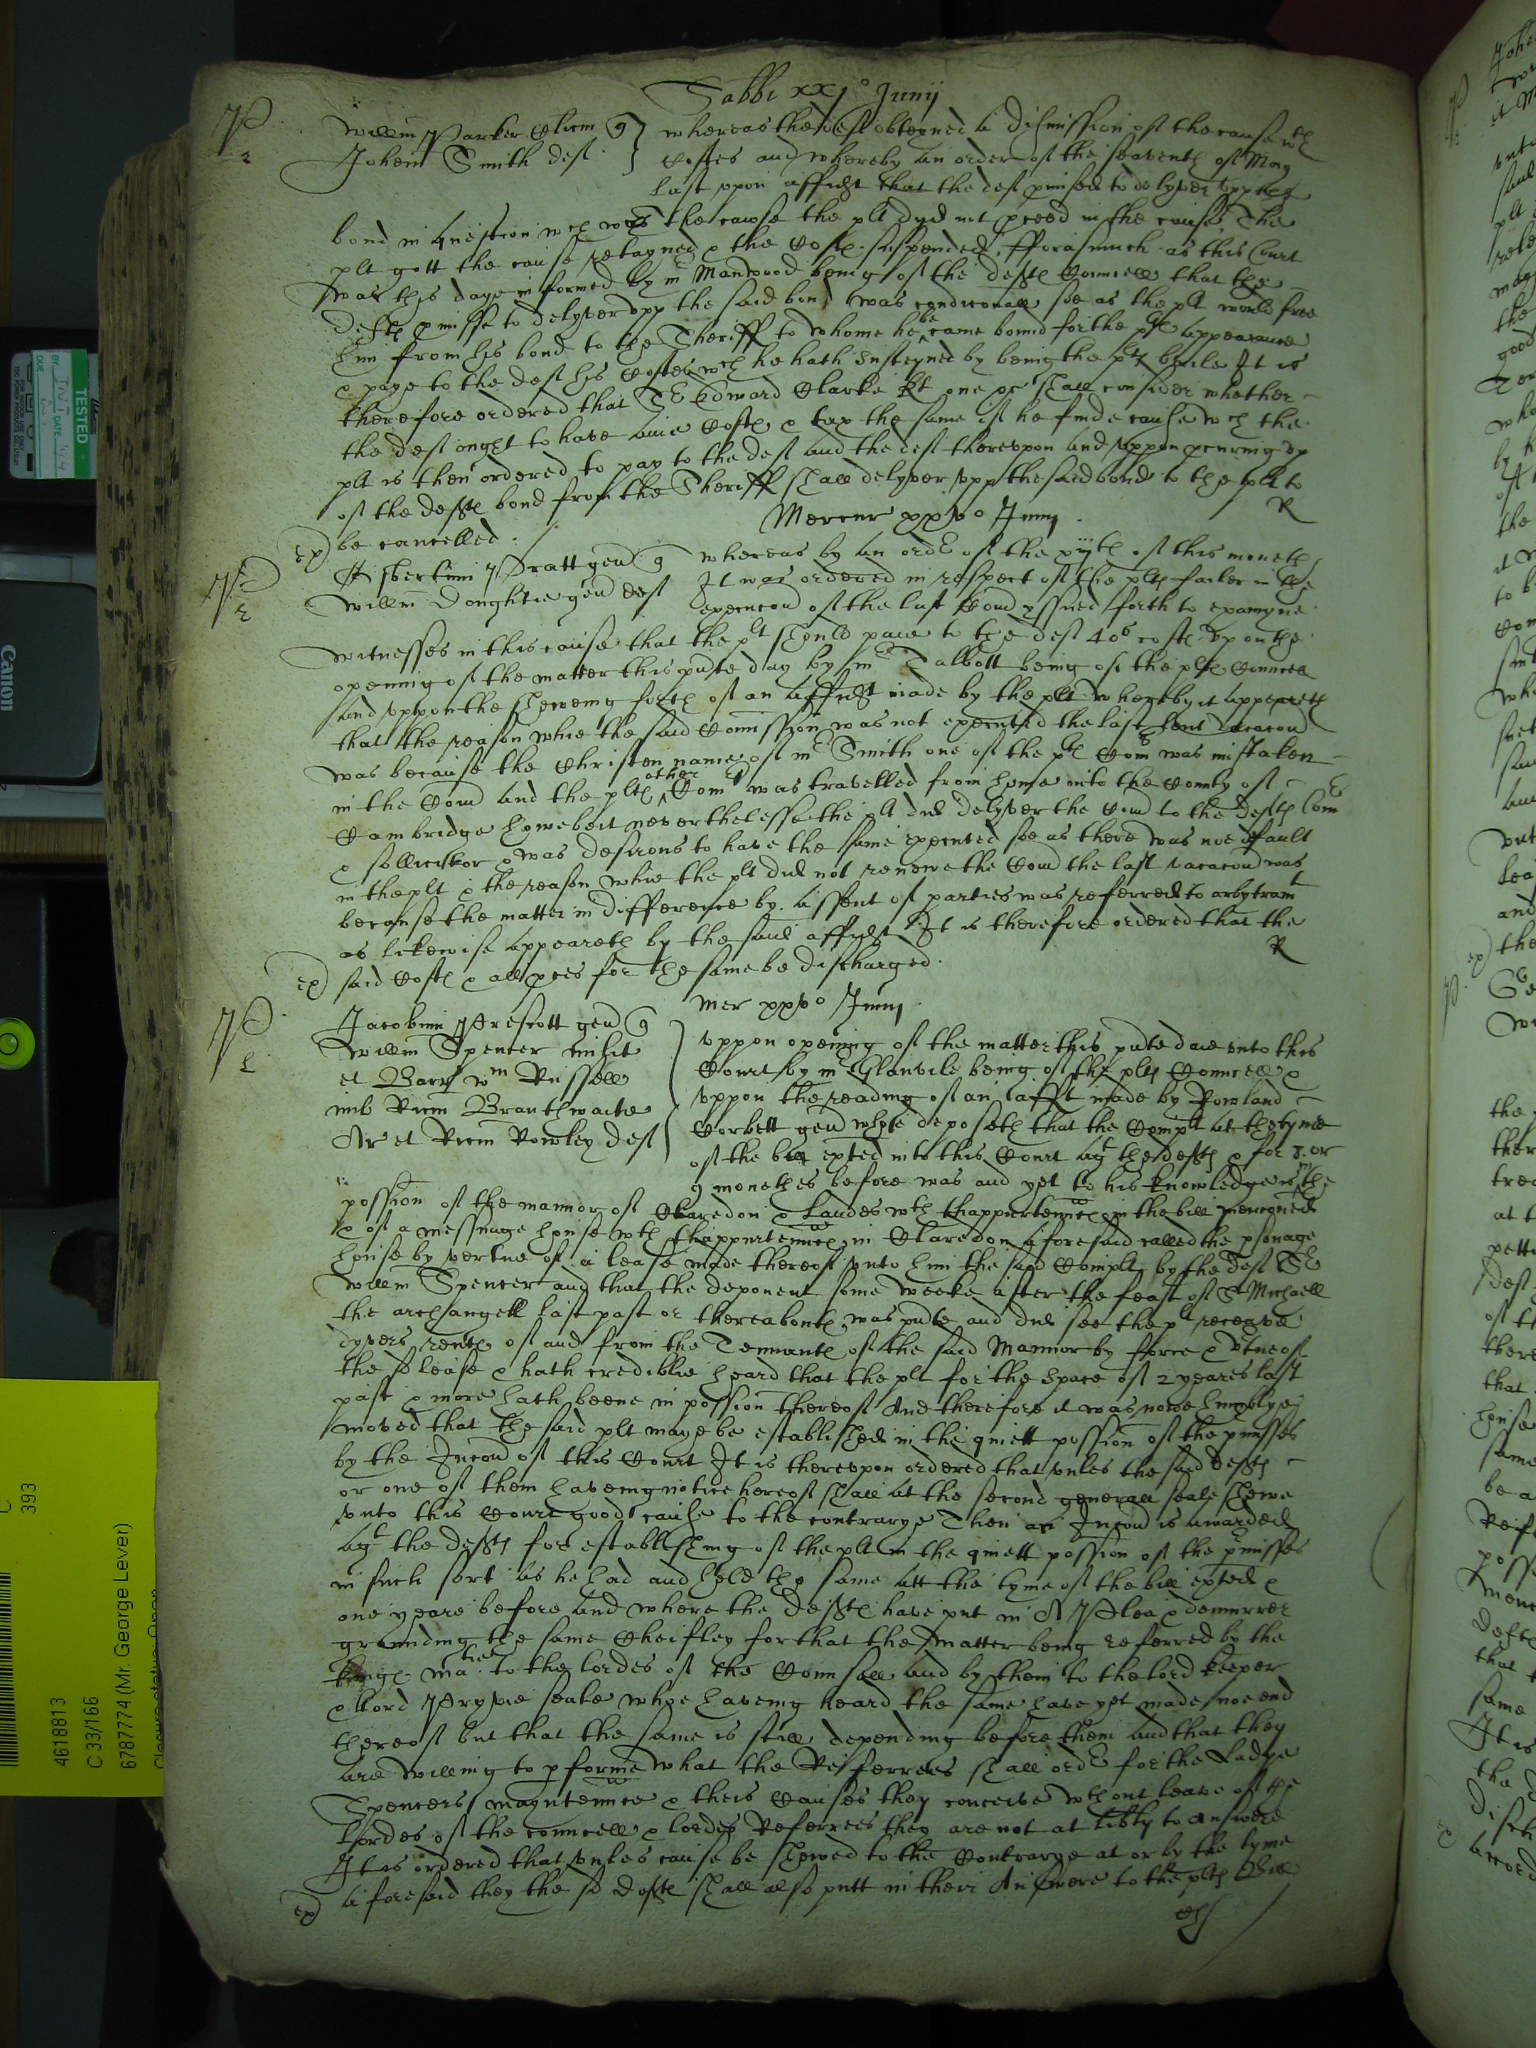 Sabbi xxj° Junij
P
2
Willm Parker quer
Johem Smith deft
whereas the deft obteyned a dismission of the cause wth
costes and whereby an order of the seaventh of May
last vpon affidt that the deft pmised to delyver vpp the
bond in question wch was the cawse the plt dyd not pceed in the cause The
plt gott the cause retayned & the Costs suspended, fforasmuch as this Court
was this daye informed by mr Manwood being of the defts Councell that the
defts pmisse to delyver vpp the said bond was condicionall soe as the plt would free
him from his bond to the Sheriff to whome he became bound for the plts appearance
& paye to the deft his costes wch he hath susteyned by being the plts baile It is
therefore ordered that Sr Edward Clarke kt one &c shall consider whether
the deft ought to have anie Costs & tax the same if he finde cause wch the
plt is then ordered to pay to the deft and the deft therevpon and vppon pcuring vp
of the defts bond from the Sheriff shall delyver vpp the said bond to the plt to
be cancelled
R
ex
Mercur xxv° Junij
P
2
Pratt gen q
Willm Doughtie gen deft
whereas by an ordr of the xijth of this moneth
It was ordered in respect of the plts failer in the
execucon of the last Com yssued forth to examyne
witnesses in this cause that the plt should paie to the deft 40s costs vpon the
opening of the matter this pnte day by mr Talbott being of the plts Councell
and vppon the shewing forth of an affidt made by the plt whereby it appeareth
that the reason whie the said Comission was not executed the last vacacon
was because the Christen name of mr Smith one of the plts Comrs was mistaken
in the Com and the plts other Comr was travelled from home into the County of
Cambridge howebeit neverthelesse the plt did delyver the Com to the defts Comr
& sollicitor & was desirous to have the same executed soe as there was noe default
in the plt & the reason whie the plt did not renewe the Com the last vacacon was
becawse the matter in difference by assent of parties was referred to arbytramt
as likewise appeareth by the said affidt It is therefore ordered that the
said Costs & all pces for the same be discharged
R
ex
Mer xxv° Junij
P
Jacobum Prescott gen q
Willm Spencer milit
et Barr wm Russell
milt Ricm Branthwaite
Ar et Ricm Rowley deft
vppon opening of the matter this pnte daie vnto this
Court by mr Glanvile being of the plts Councell &
vppon the reading of an affdt made by Rowland
Corbett gen whoe deposeth that the Complt at the tyme
of the bill exhted into this Court agt the defts & for 8 or
9 monethes before was and yet to his knowledge is in the
possion of the mannor of Claredon & Landes wth thappurtennces in the bill menconed
& of a messuage house wth thappurtennces in Claredon aforesaid called the psonage
house by vertue of a lease made thereof vnto him the said Complt by the deft Sr
Willm Spencer and that the deponent some weeke after the feast of St Michaell
the archangell last past or thereabouts was pnte and did see the plt receave
dyvers rents of and from the Tennants of the said Mannor by force & vtue of
the sd lease & hath crediblie heard that the plt for the space of 2 yeares last
past & more hath beene in possion thereof And therefore it was nowe humbly
moved that the said plt maye be established in the quiett possion of the pmisses
by the Incon of this Court It is therevpon ordered that vnles the said defts
or one of them haveing notice hereof shall at the second generall seale shewe
vnto this Court good cause to the contrarye Then an Incon is awarded
agt the defts for establishing of the plt in the quiett possion of the pmisses
in such sort as he had and held the same att the tyme of the bill exhted &
one yeare before and where the defts have put in A Plea & demurrer
grounding the same Cheifley for that the matter being referred by the
kings matie to the lordes of the Counsell and by them to the lord keeper
& Lord Pryvie seale whoe haveing heard the same have yet made noe end
thereof but that the same is still depending before them and that they
are willing to pforme what the Refferrees shall ordr for the Ladye
Spencers mayntennce & theis Causes they conceive wthout leave of the
Lordes of the Councell & lordes Referrees they are not at libty to answere
It is ordered that vnles cause be shewed to the Contrarye at or by the tyme
aforesaid they the sd defts shall also putt in their Answere to the plts bill
ex
TESTED
BY
DATE
DUE
Canon
C
393
4618813
C 33/166
6787774 (Mr. George Lever)